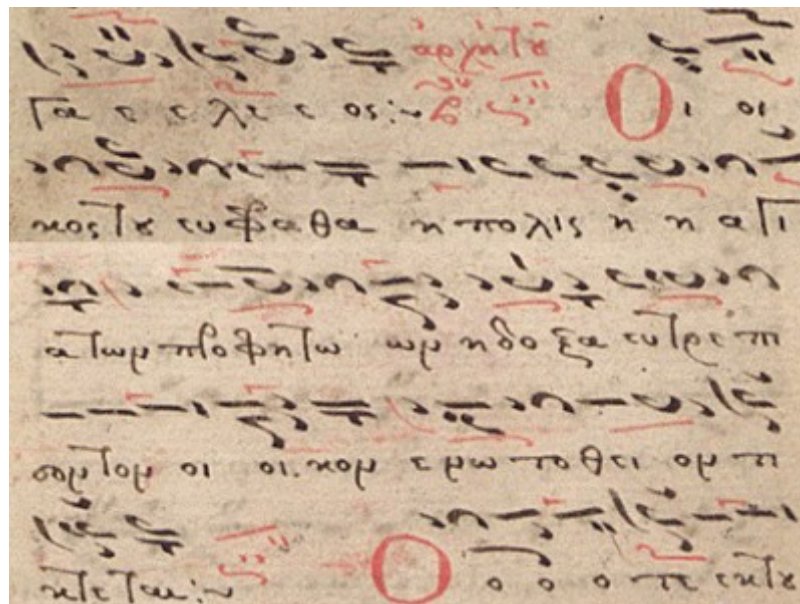 γα ε ε λε ε ος:~ Ο ι οι
κος του ευ φρα θα η πο λις η η α γι
α των προ φη τω ων η δο ξα ευ τρε πι
σον τον οι οι κον εν ω το θει ον τι
κτε ται:~ Ο ο ο ο τε εκ του